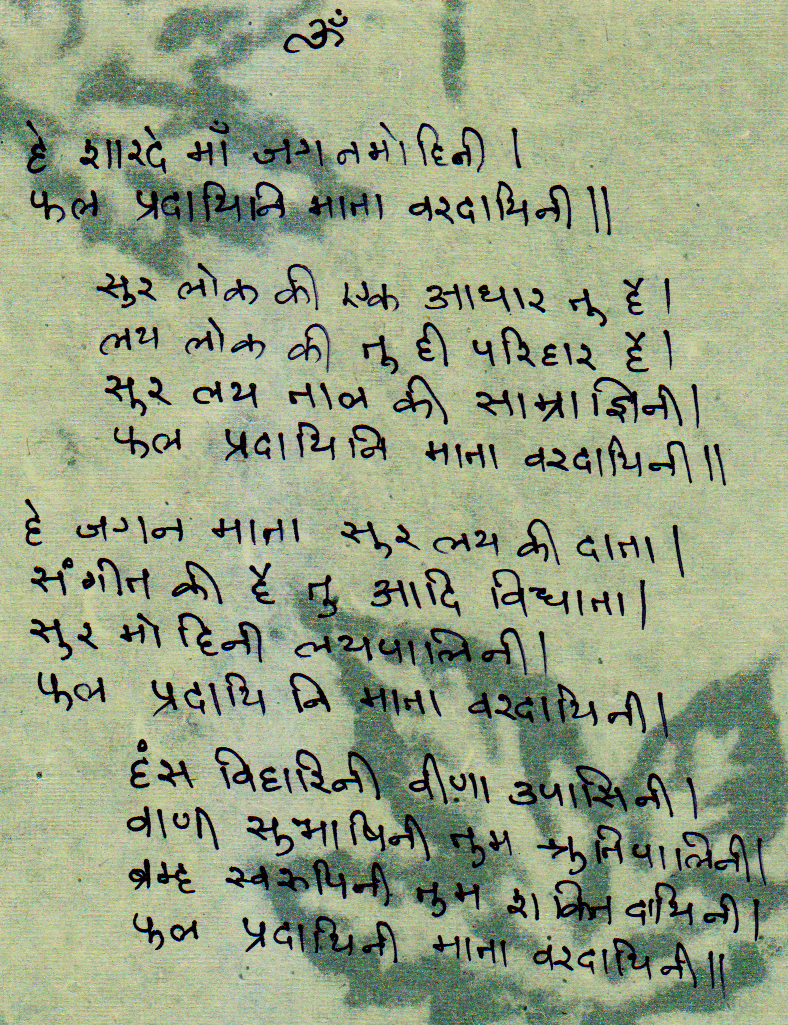 ॐ
हे शारदे माँ जगनमोहिनी |
फल प्रदायिनि माता वरदायिनी ||
सुर लोक की एक आधार तू है |
लय लोक की तू ही परिहार है |
सुर लय ताल की साम्राज्ञिनी |
फल प्रदायिनि माता वरदायिनी ||
हे जगन माता सुर लय की दाता |
संगीत की है तू आदि विधाता |
सुर मोहिनी लयपालिनी |
फल प्रदायिनि माता वरदायिनी |
हंस विहारिनी वीणा उपासिनी |
वाणी सुभाषिनी तुम श्रुतिपालिनी |
ब्रम्ह स्वरुपिनी तुम शक्ति दायिनी |
फल प्रदायिनी माता वंरदायिनी ||